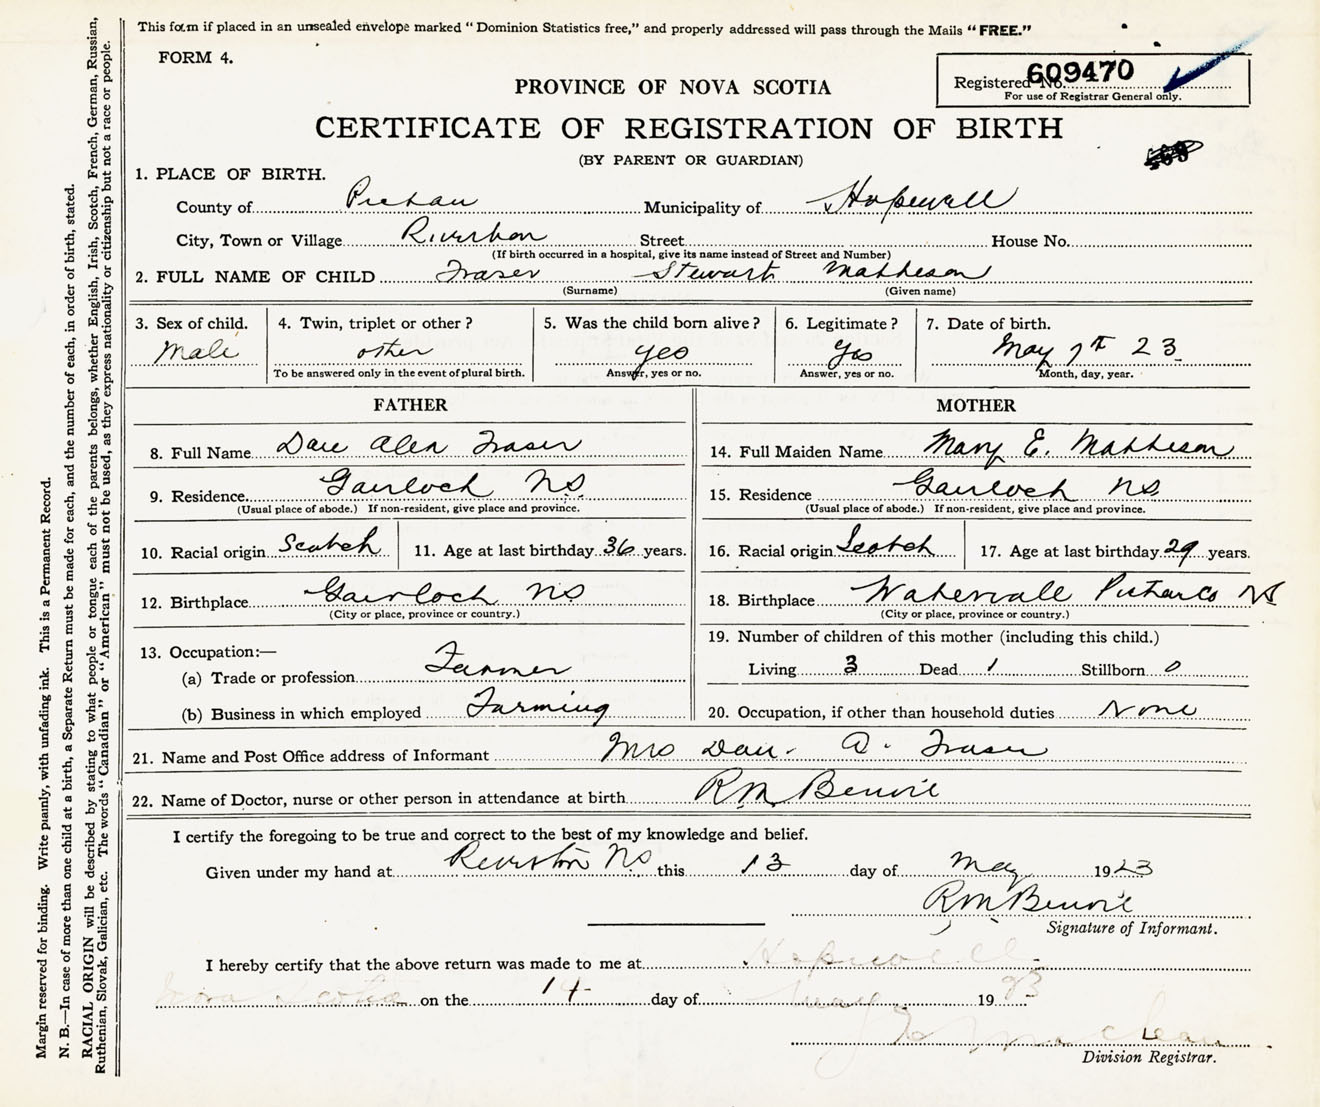 This form if placed in an unsealed envelope marked "Dominion Statistics free," and properly addressed will pass through the Mails "FREE."
FORM 4.
Registered No. 609470
For use of Registrar General only.
PROVINCE OF NOVA SCOTIA
CERTIFICATE OF REGISTRATION OF BIRTH
(BY PARENT OR GUARDIAN)
1. PLACE OF BIRTH.
County of Pictou Municipality of Hopewell
City, Town or Village Riverton Street House No.
(If birth occurred in a hospital, give its name instead of Street and Number)
2. FULL NAME OF CHILD Fraser Stewart Matheson
(Surname) (Given name)
3. Sex of child. 4. Twin, triplet or other? 5. Was the child born alive? 6. Legitimate? 7. Date of birth.
Male other yes Yes May 7th 23
To be answered only in the event of plural birth. Answer, yes or no. Answer, yes or no. Month, day, year.
FATHER MOTHER
8. Full Name Dan Alex Fraser 14. Full Maiden Name Mary E. Matheson
9. Residence Gairloch NS 15. Residence Gairloch NS
(Usual place of abode.) If non-resident, give place and province. (Usual place of abode.) If non-resident, give place and province.
10. Racial origin Scotch 11. Age at last birthday 36 years. 16. Racial origin Scotch 17. Age at last birthday 29 years.
12. Birthplace Gairloch NS 18. Birthplace Watervale Pictou Co NS
(City or place, province or country.) (City or place, province or country.)
13. Occupation:— 19. Number of children of this mother (including this child.)
(a) Trade or profession Farmer Living 3 Dead 1 Stillborn 0
(b) Business in which employed Farming 20. Occupation, if other than household duties None
21. Name and Post Office address of Informant Mrs Dan. A. Fraser
22. Name of Doctor, nurse or other person in attendance at birth RM Benvie
I certify the foregoing to be true and correct to the best of my knowledge and belief.
Given under my hand at Riverton NS this 13 day of May 1923
RM Benvie
Signature of Informant.
I hereby certify that the above return was made to me at Hopewell
Nova Scotia on the 14 day of May 19 23
MacLean
Division Registrar.
Margin reserved for binding. Write plainly, with unfading ink. This is a Permanent Record.
N. B.—In case of more than one child at a birth, a Separate Return must be made for each, and the number of each, in order of birth, stated.
RACIAL ORIGIN will be described by stating to what people or tongue each of the parents belongs, whether English, Irish, Scotch, French, German, Russian,
Ruthenian, Slovak, Galician, etc. The words "Canadian" or "American" must not be used, as they express nationality or citizenship but not a race or people.